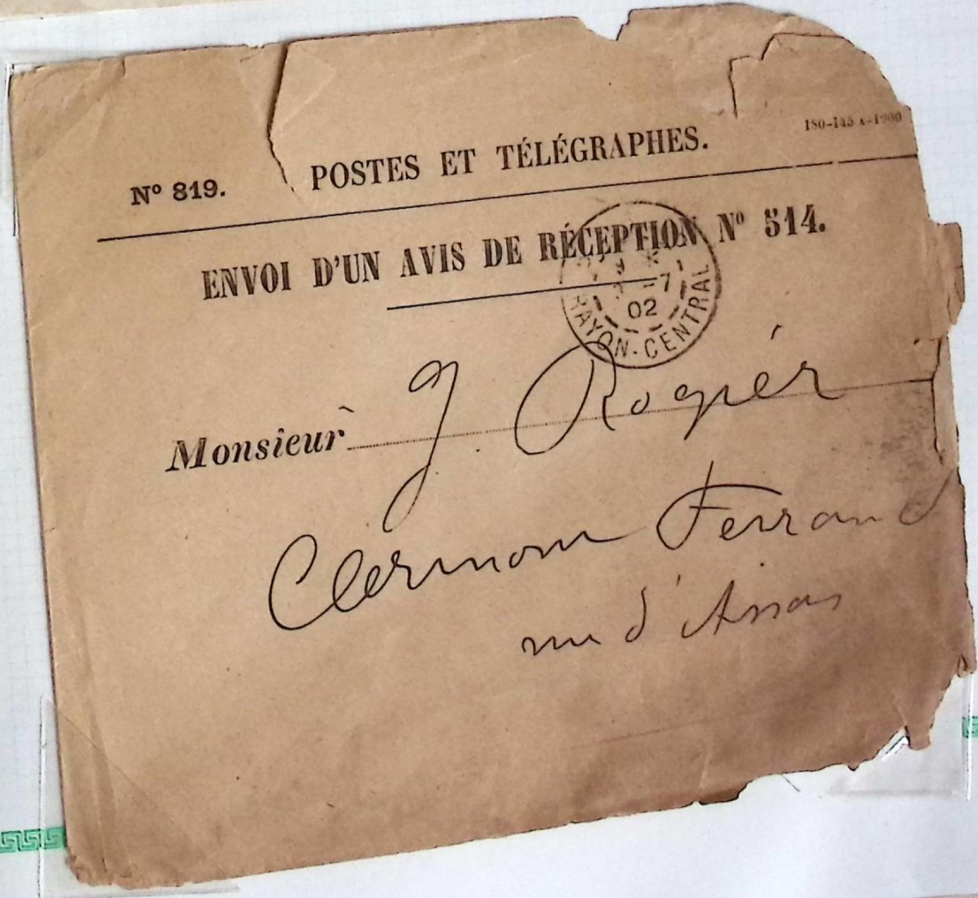 180-145 x-1900
N° 819.
POSTES ET TÉLÉGRAPHES.
ENVOI D'UN AVIS DE RÉCEPTION N° 514.
-7
02
RAYON-CENTRAL
Monsieur J Rogier
Clermont Ferrand
rue d'Assas